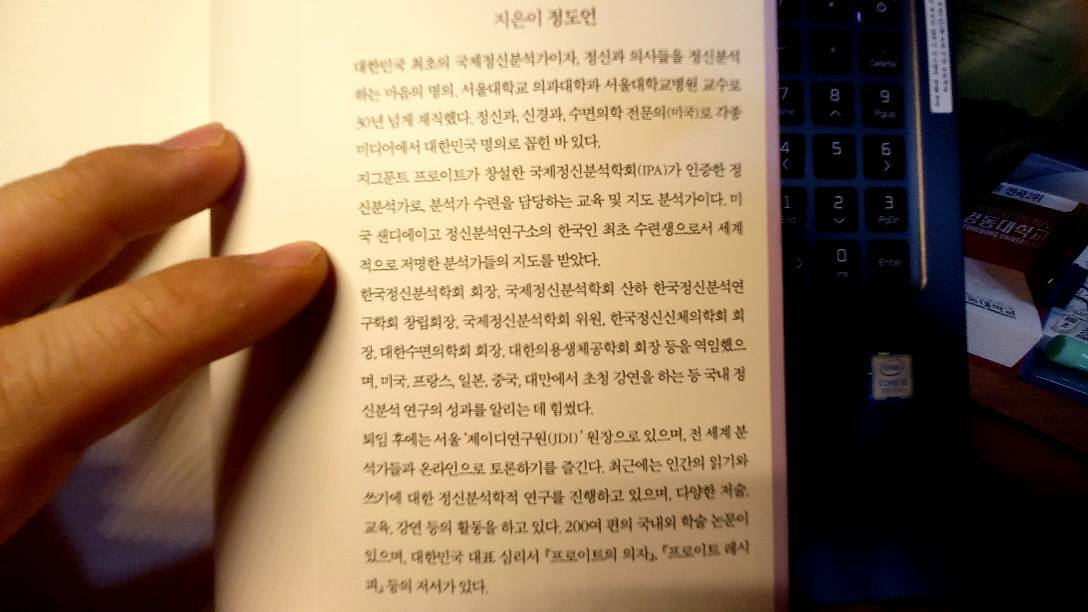 지은이 정도언
대한민국 최초의 국제정신분석가이자, 정신과 의사들을 정신분석
하는 마음의 명의. 서울대학교 의과대학과 서울대학교병원 교수로
30년 넘게 재직했다. 정신과, 신경과, 수면의학 전문의(미국)로 각종
미디어에서 대한민국 명의로 꼽힌 바 있다.
지그문트 프로이트가 창설한 국제정신분석학회(IPA)가 인증한 정
신분석가로, 분석가 수련을 담당하는 교육 및 지도 분석가이다. 미
국 샌디에이고 정신분석연구소의 한국인 최초 수련생으로서 세계
적으로 저명한 분석가들의 지도를 받았다.
한국정신분석학회 회장, 국제정신분석학회 산하 한국정신분석연
구학회 창립회장, 국제정신분석학회 위원, 한국정신신체의학회 회
장, 대한수면의학회 회장, 대한의용생체공학회 회장 등을 역임했으
며, 미국, 프랑스, 일본, 중국, 대만에서 초청 강연을 하는 등 국내 정
신분석 연구의 성과를 알리는 데 힘썼다.
퇴임 후에는 서울 '제이디연구원(JDI)' 원장으로 있으며, 전 세계 분
석가들과 온라인으로 토론하기를 즐긴다. 최근에는 인간의 읽기와
쓰기에 대한 정신분석학적 연구를 진행하고 있으며, 다양한 저술,
교육, 강연 등의 활동을 하고 있다. 200여 편의 국내외 학술 논문이
있으며, 대한민국 대표 심리서 『프로이트의 의자』, 『프로이트 레시
피』 등의 저서가 있다.
7
8
9
PgUp
4
5
6
1
End
2
3
PgDn
0
Ins
Enter
intel
CORE i5
전국2위
경동대학